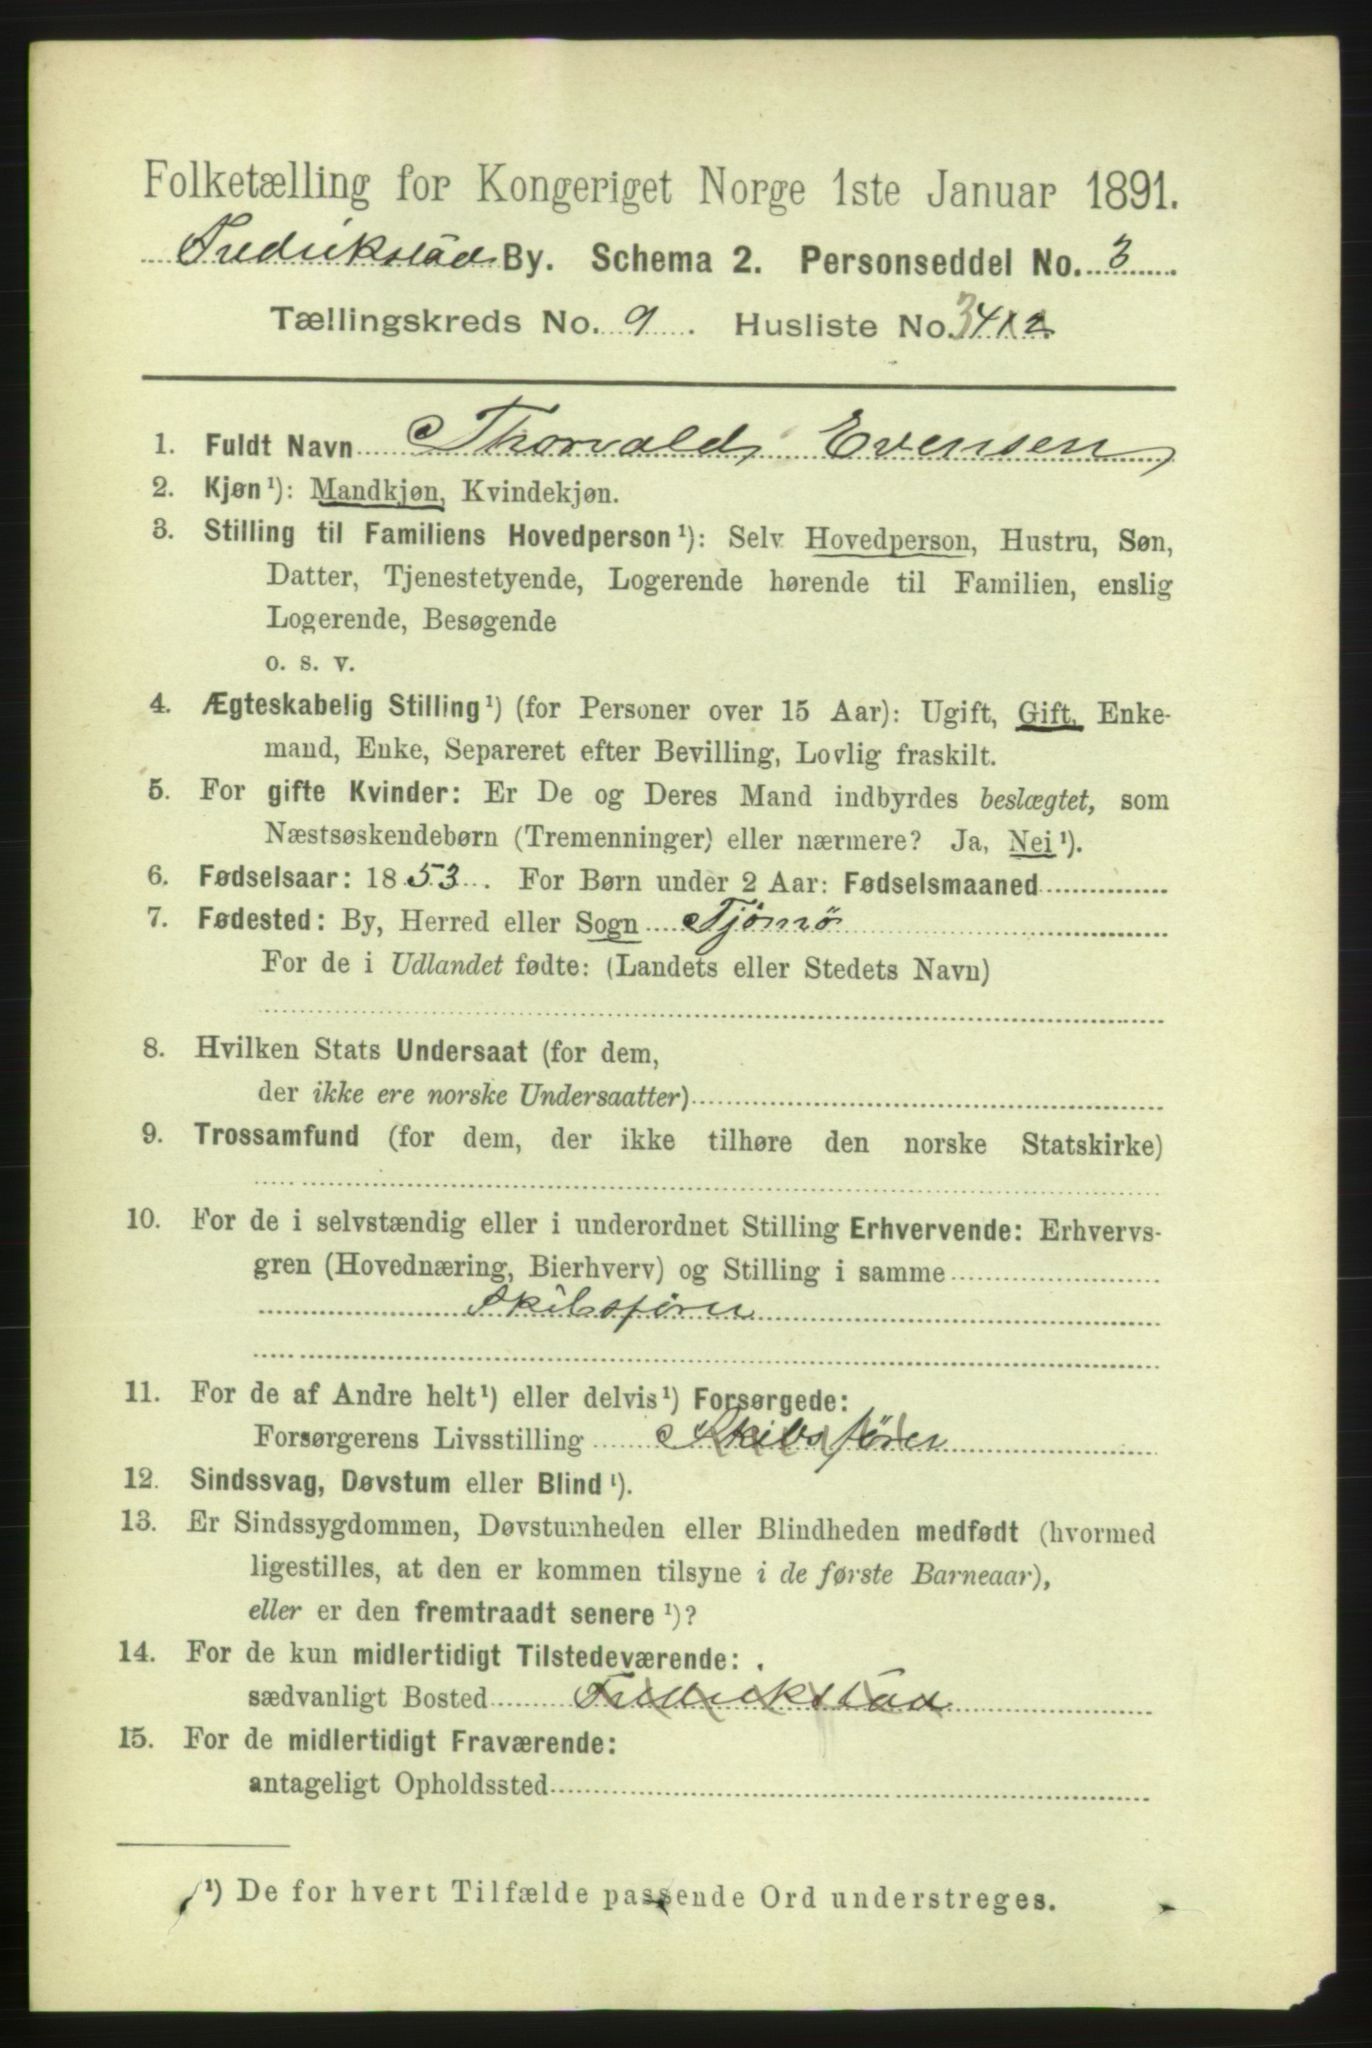 Folketælling for Kongeriget Norge 1ste Januar 1891.
Fredrikstad By. Schema 2. Personseddel No. 3.
Tællingskreds No. 9. Husliste No.
1. Fuldt Navn Thorvald Evensen
2. Kjøn¹): Mandkjøn, Kvindekjøn.
3. Stilling til Familiens Hovedperson¹): Selv Hovedperson, Hustru, Søn,
Datter, Tjenestetyende, Logerende hørende til Familien, enslig
Logerende, Besøgende
o. s. v.
4. Ægteskabelig Stilling¹) (for Personer over 15 Aar): Ugift, Gift, Enke-
mand, Enke, Separeret efter Bevilling, Lovlig fraskilt.
5. For gifte Kvinder: Er De og Deres Mand indbyrdes beslægtet, som
Næstsøskendebørn (Tremenninger) eller nærmere? Ja, Nei¹).
6. Fødselsaar: 1853. For Børn under 2 Aar: Fødselsmaaned
7. Fødested: By, Herred eller Sogn Tjømø
For de i Udlandet fødte: (Landets eller Stedets Navn)
8. Hvilken Stats Undersaat (for dem,
der ikke ere norske Undersaatter)
9. Trossamfund (for dem, der ikke tilhøre den norske Statskirke)
10. For de i selvstændig eller i underordnet Stilling Erhvervende: Erhvervs-
gren (Hovednæring, Bierhverv) og Stilling i samme
Skibsfører
11. For de af Andre helt¹) eller delvis¹) Forsørgede:
Forsørgerens Livsstilling Skibsfører
12. Sindssvag, Døvstum eller Blind¹).
13. Er Sindssygdommen, Døvstumheden eller Blindheden medfødt (hvormed
ligestilles, at den er kommen tilsyne i de første Barneaar),
eller er den fremtraadt senere¹)?
14. For de kun midlertidigt Tilstedeværende:
sædvanligt Bosted Fredrikstad
15. For de midlertidigt Fraværende:
antageligt Opholdssted
¹) De for hvert Tilfælde passende Ord understreges.